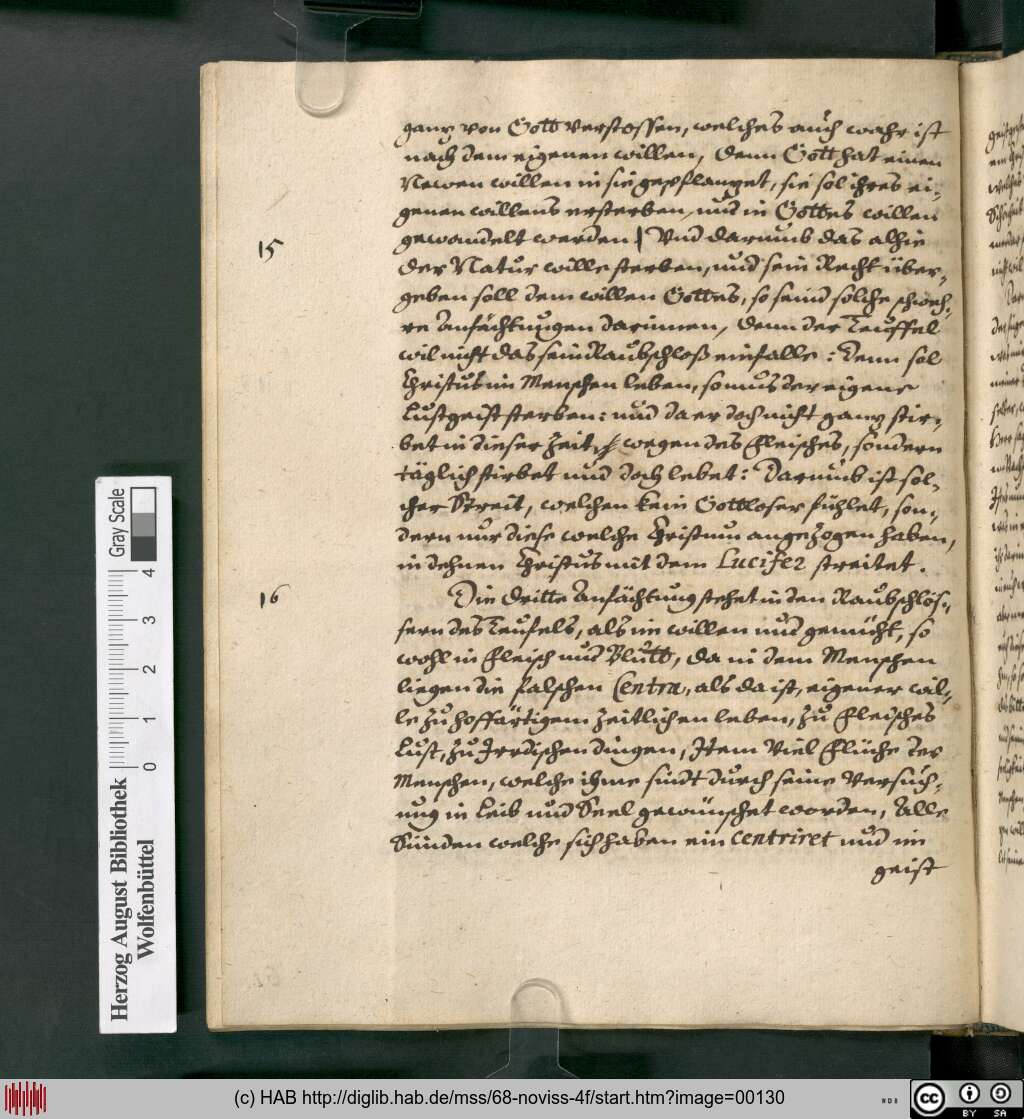 gantz von Gott verstossen, welches auch wahr ist
nach dem eigenen willen, denn Gott hat einen
Newen willen in sie gepflantzet, sie sol ihres ei-
genen willens ersterben, und in Gottes willen
15 gewandelt werden / Und darumb das alhie
der Natur wille sterben, und sein Recht über-
geben soll dem willen Gottes, so seind solche schweh-
re Anfächtungen darinnen, denn der Teuffel
wil nicht das sein Raubschloß einfalle: denn sol
Christus im Menschen leben, so mus der eigene
Lustgeist sterben: und da er doch nicht gantz stir-
bet in dieser Zeit, wegen des Fleisches, sondern
täglich stirbet und doch lebet: Darumb ist sol-
cher Streit, welchen kein Gottloser fühlet, son-
dern nur diese welche Christum angezogen haben,
in dehnen Christus mit dem Lucifer streitet.
16 Die dritte Anfächtung stehet in den Raubschlös-
sern des Teufels, als im willen und gemüht, so
wohl in Fleisch und Blutt, da in dem Menschen
liegen die falschen Centra, als da ist, eigener wil-
le zu hoffärtigem zeitlichen leben, zu Fleisches
Lust, zu Irrdischen dingen, Item Viel Flüche der
Menschen, welche ihme sindt durch seine Versuch-
ung in Leib und Seel gewünschet worden, Alle
Sünden welche sich haben ein centriret und im
geist
Gray Scale
0 1 2 3 4
Herzog August Bibliothek
Wolfenbüttel
(c) HAB http://diglib.hab.de/mss/68-noviss-4f/start.htm?image=00130
cc BY SA